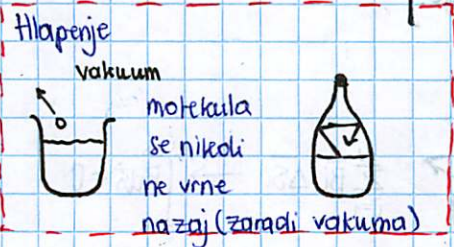 Hlapenje
vakuum
molekula
se nikoli
ne vrne
nazaj (zaradi vakuma)